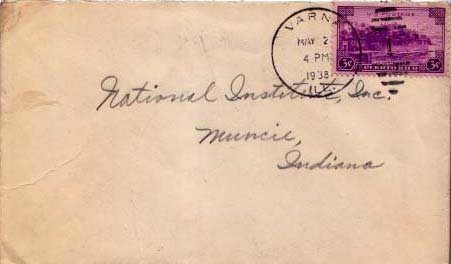 VARNA
MAY 2
4 PM
1938
ILL.
U.S. POSTAGE
3¢ 3¢
PUERTO RICO
National Institute, Inc.
Muncie,
Indiana